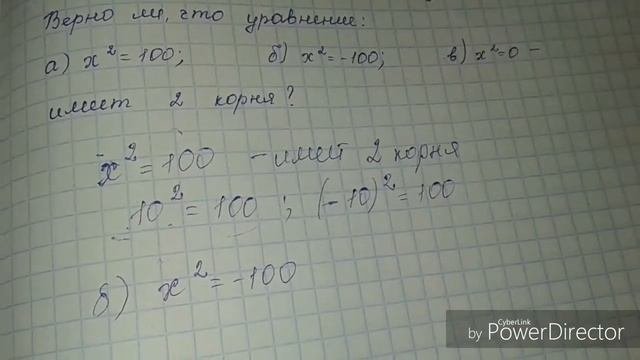 Верно ли, что уравнение:
а) x² = 100; б) x² = -100; в) x² = 0 -
имеет 2 корня?
x² = 100 - имеет 2 корня
10² = 100 ; (-10)² = 100
б) x² = -100
CyberLink
by PowerDirector